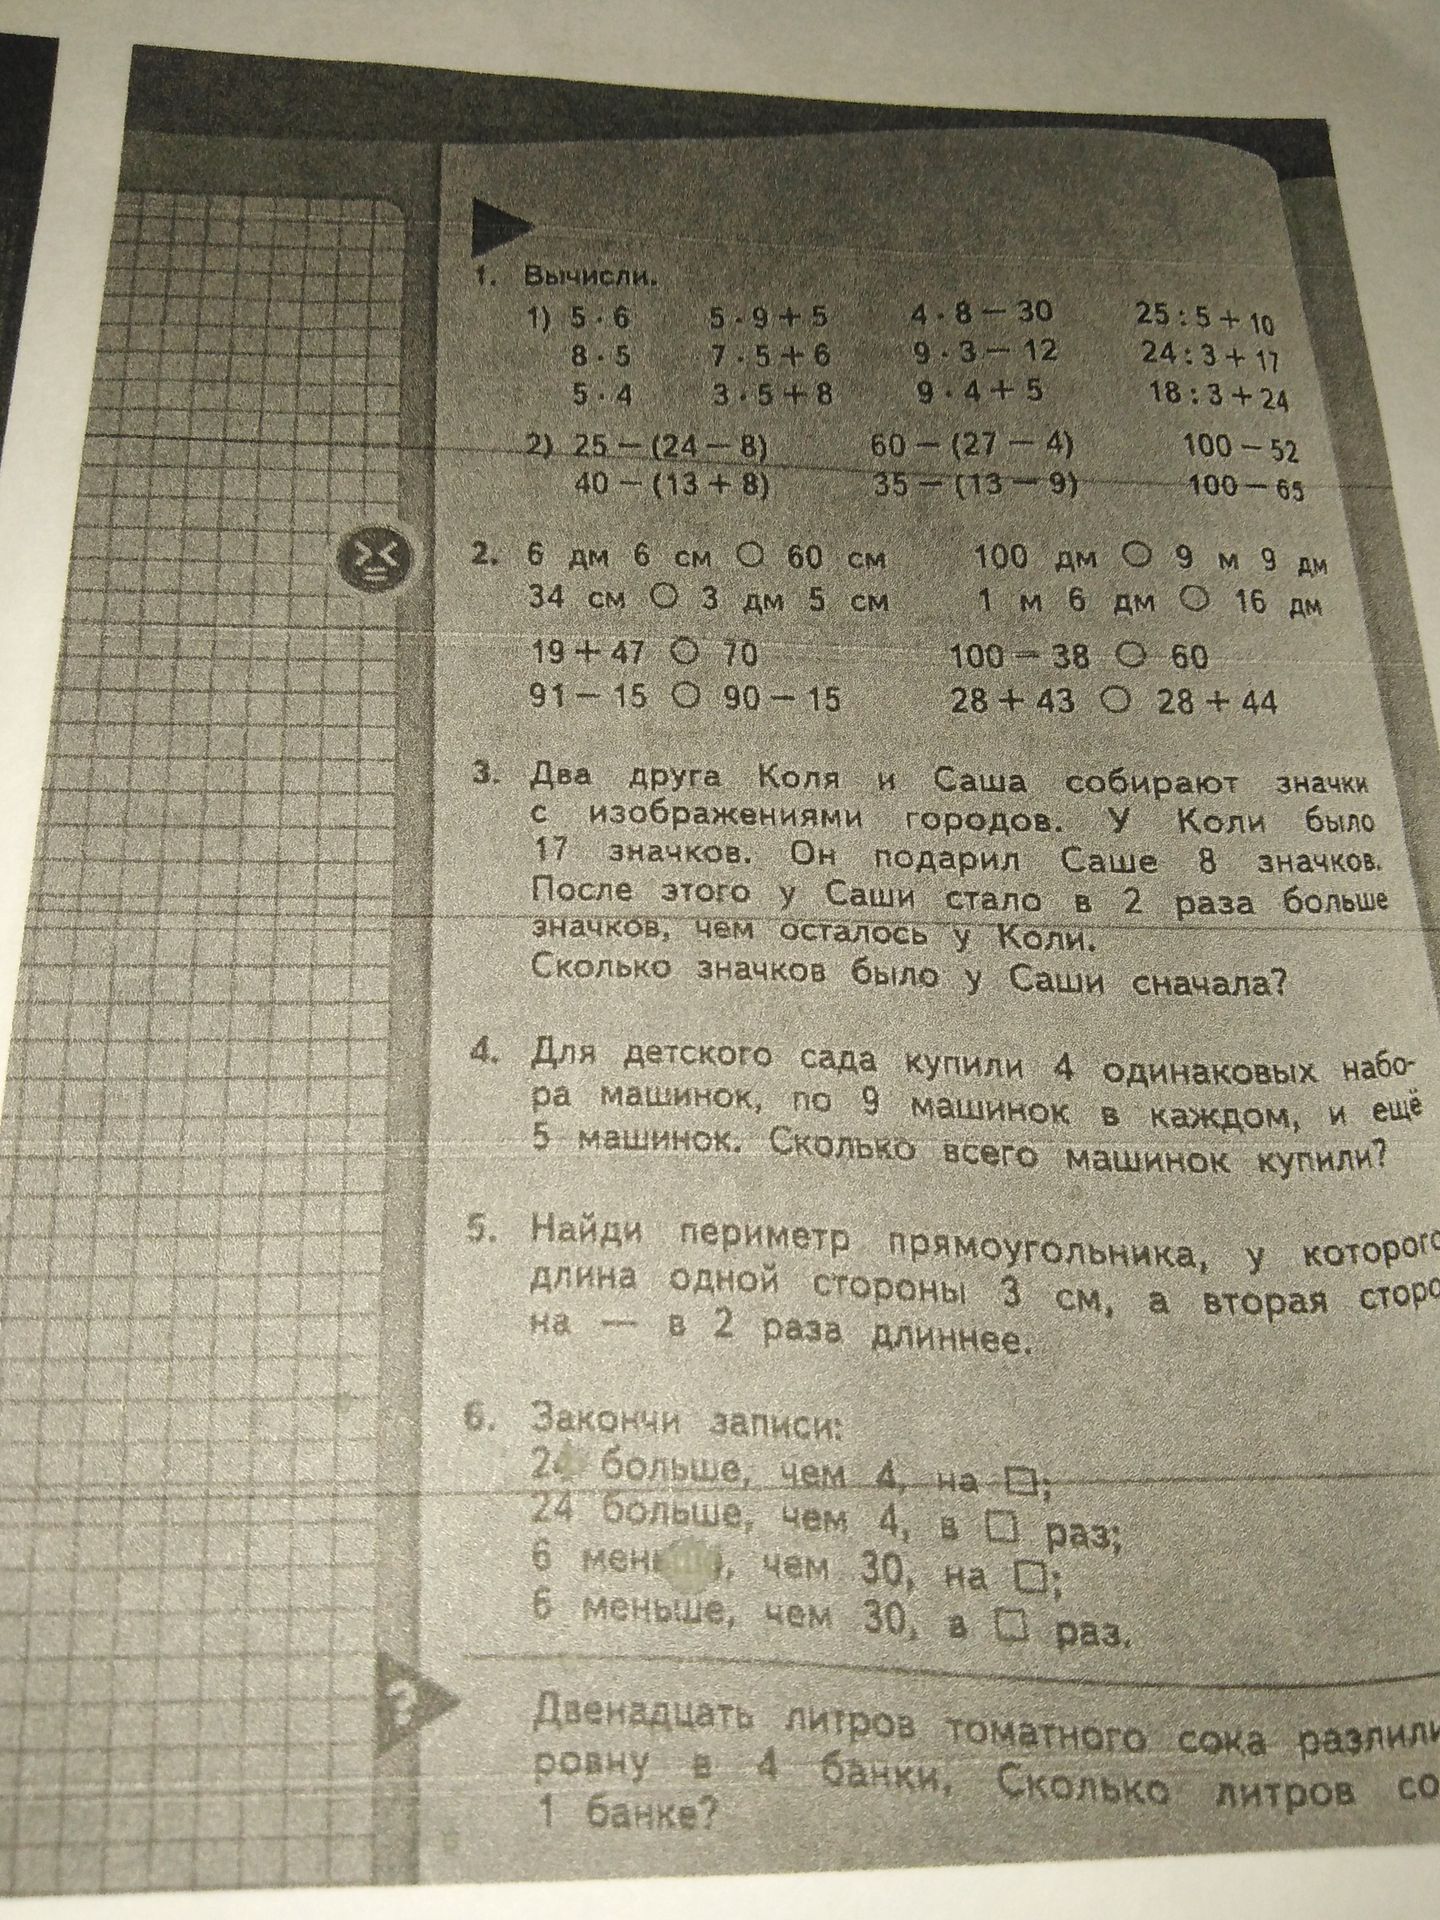 1. Вычисли.
1) 5 · 6 5 · 9 + 5 4 · 8 − 30 25 : 5 + 10
8 · 5 7 · 5 + 6 9 · 3 − 12 24 : 3 + 17
5 · 4 3 · 5 + 8 9 · 4 + 5 18 : 3 + 24
2) 25 − (24 − 8) 60 − (27 − 4) 100 − 52
40 − (13 + 8) 35 − (13 − 9) 100 − 65
2. 6 дм 6 см ○ 60 см 100 дм ○ 9 м 9 дм
34 см ○ 3 дм 5 см 1 м 6 дм ○ 16 дм
19 + 47 ○ 70 100 − 38 ○ 60
91 − 15 ○ 90 − 15 28 + 43 ○ 28 + 44
3. Два друга Коля и Саша собирают значки
с изображениями городов. У Коли было
17 значков. Он подарил Саше 8 значков.
После этого у Саши стало в 2 раза больше
значков, чем осталось у Коли.
Сколько значков было у Саши сначала?
4. Для детского сада купили 4 одинаковых набо-
ра машинок, по 9 машинок в каждом, и ещё
5 машинок. Сколько всего машинок купили?
5. Найди периметр прямоугольника, у которого
длина одной стороны 3 см, а вторая сторо
на — в 2 раза длиннее.
6. Закончи записи:
24 больше, чем 4, на □;
24 больше, чем 4, в □ раз;
6 меньше, чем 30, на □;
6 меньше, чем 30, в □ раз.
?
Двенадцать литров томатного сока разлили
ровну в 4 банки. Сколько литров со
1 банке?